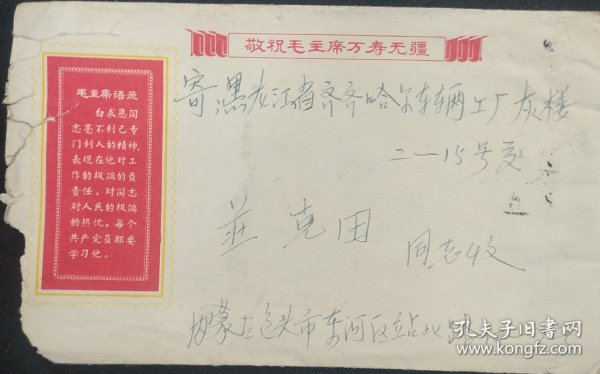 敬祝毛主席万寿无疆
毛主席语录
白求恩同
志毫不利己专
门利人的精神，
表现在他对工
作的极端的负
责任，对同志
对人民的极端
的热忱。每个
共产党员都要
学习他。
寄黑龙江省齐齐哈尔车辆工厂灰楼
二一15号交
庄克田
同志收
内蒙古包头市东河区站北
孔夫子旧书网
www.kongfz.com